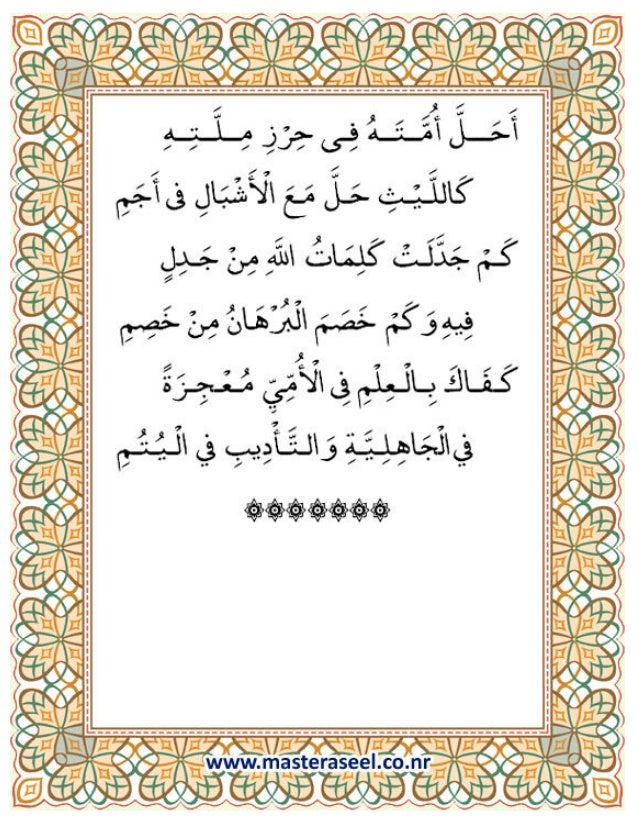 أَحَلَّ أُمَّتَهُ فِى حِرْزِ مِلَّتِهِ
كَاللَّيْثِ حَلَّ مَعَ الْأَشْبَالِ فى أَجَمِ
كَمْ جَدَّلَتْ كَلِمَاتُ اللَّهِ مِنْ جَدِلٍ
فِيهِ وَ كَمْ خَصَمَ الْبُرْهَانُ مِنْ خَصِمِ
كَفَاكَ بِالْعِلْمِ فِى الْأُمِّيِّ مُعْجِزَةً
فِي الْجَاهِلِيَّةِ وَ التَّأْدِيبِ فِي الْيُتُمِ
www.masteraseel.co.nr